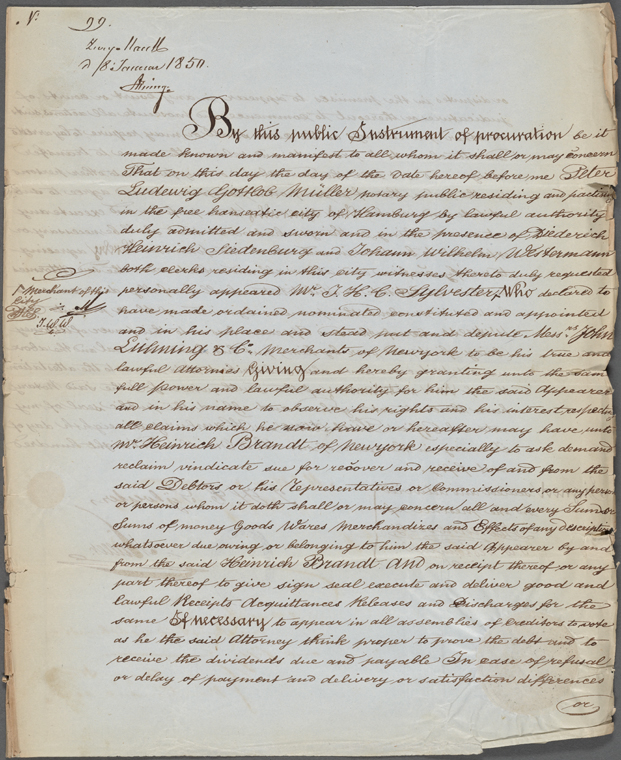 No. 99.
d 8 Januar 1850.
By this public Instrument of procuration be it
made known and manifest to all whom it shall or may concern
That on this day the day of the date hereof before me Peter
Ludewig Gottlob Müller notary public residing and
in the free hanseatic city of Hamburg by lawful authority
duly admitted and sworn and in the presence of Diederich
Heinrich Siedenburg and Johann Wilhelm Westermann
both clerks residing in this city witnesses thereto duly requested
personally appeared Mr. J. H. C. Sylvester, Who declared to
Merchant of this
City
J.W.W.
have made ordained nominated constituted and appointed
and in his place and stead put and depute Messrs John
Luhning & Co. Merchants of Newyork to be his true and
lawful Attornies Giving and hereby granting unto the same
full power and lawful authority for him the said Appearer
and in his name to observe his rights and his interest respecting
all claims which he now have or hereafter may have unto
Mr. Heinrich Brandt of Newyork especially to ask demand
reclaim vindicate sue for recover and receive of and from the
said Debtors or his Representatives or Commissioners or any person
or persons whom it doth shall or may concern all and every Sum or
Sums of money Goods Wares Merchandizes and Effects of any description
whatsoever due owing or belonging to him the said Appearer by and
from the said Heinrich Brandt And on receipt thereof or any
part thereof to give sign seal execute and deliver good and
lawful Receipts Acquittances Releases and Discharges for the
same If necessary to appear in all assemblies of Creditors to vote
as he the said Attorney think proper to prove the debt and to
receive the dividends due and payable In case of refusal
or delay of payment and delivery or satisfaction differences
or